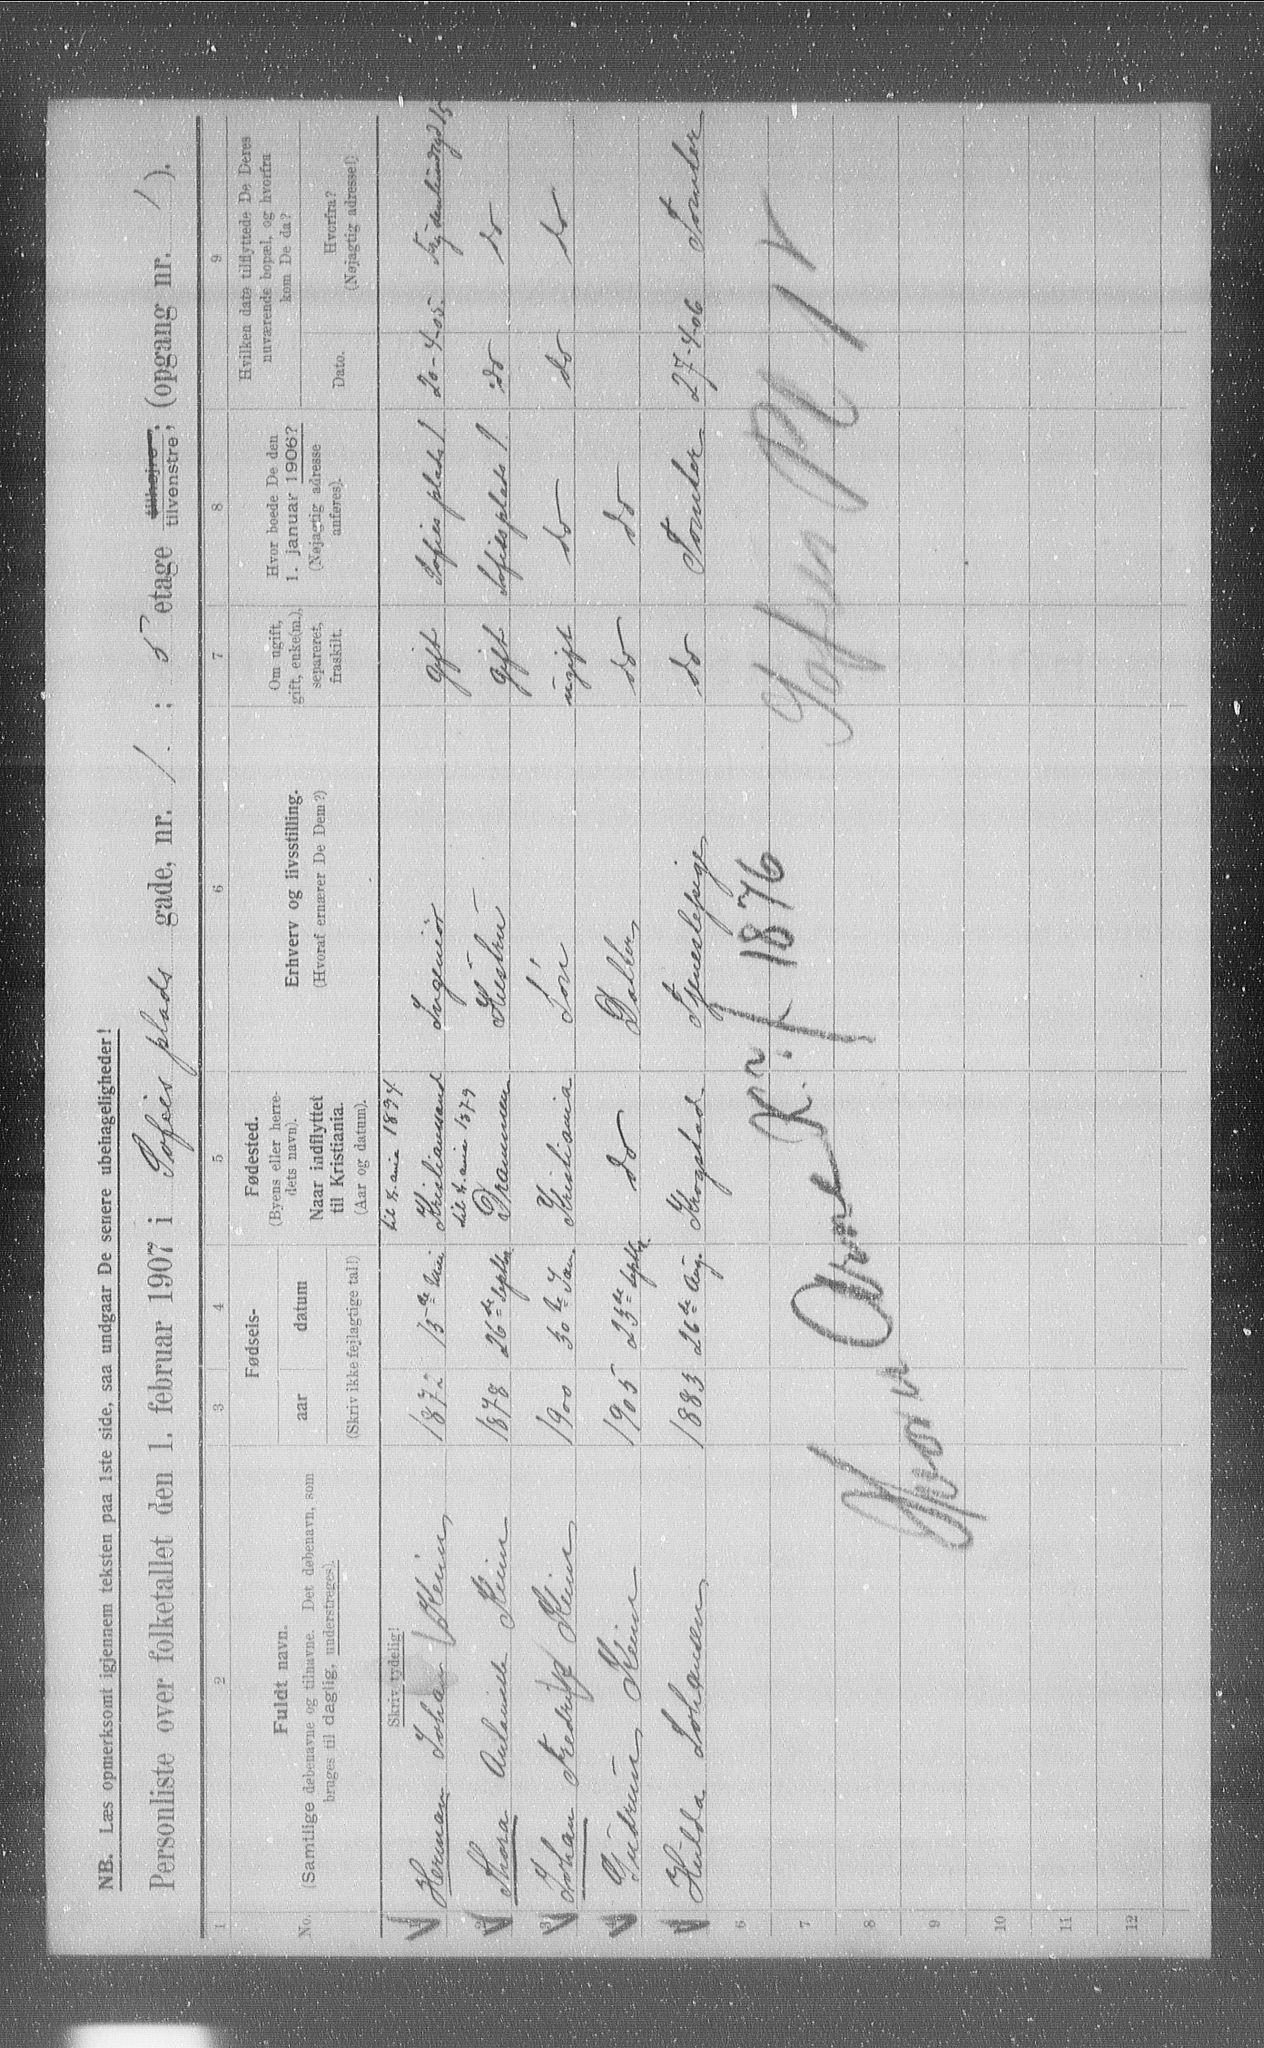 NB. Læs opmerksomt igjennem teksten paa 1ste side, saa undgaar De senere ubehageligheder!
Personliste over folketallet den 1. februar 1907 i Sofies plads gade, nr. 1. : 5 etage tilhøjre, tilvenstre; (opgang nr. 1 ).
1 2 3 4 5 6 7 8 9
No.
Fuldt navn.
(Samtlige døbenavne og tilnavne. Det døbenavn, som
bruges til daglig, understreges).
Fødsels-
aar datum
(Skriv ikke fejlagtige tal!)
Fødested.
(Byens eller herre-
dets navn).
Naar indflyttet
til Kristiania.
(Aar og datum).
Erhverv og livsstilling.
(Hvoraf ernærer De Dem?)
Om ugift,
gift, enke(m.),
separeret,
fraskilt.
Hvor boede De den
1. januar 1906?
(Nøjagtig adresse
anføres).
Hvilken dato tilflyttede De Deres
nuværende bopæl, og hvorfra
kom De da?
Dato.
Hvorfra?
(Nøjagtig adresse!)
Skriv tydelig!
til X.ania 1894
1 Herman Johan Klein 1872 15de Kristianssand Ingeniør Gift Sofies plads 1 20-4-05.
til X.ania 1879
2 Thora Klein 1878 26de Septbr. Drammen Hustru Gift Sofies plads 1. do do
3 Johan Fredrik Klein 1900 30te Jan. Kristiania Søn ugift do do do
4 Gudrun Klein 1905 23de Septbr. do Datter do do
5 Hulda Johansen 1883 26de Aug. Krogstad Tjenestepige do Tomter 27-4-06 Tomter
6
7
8
9
10
11
12
1876
Sofien Pl 1 V